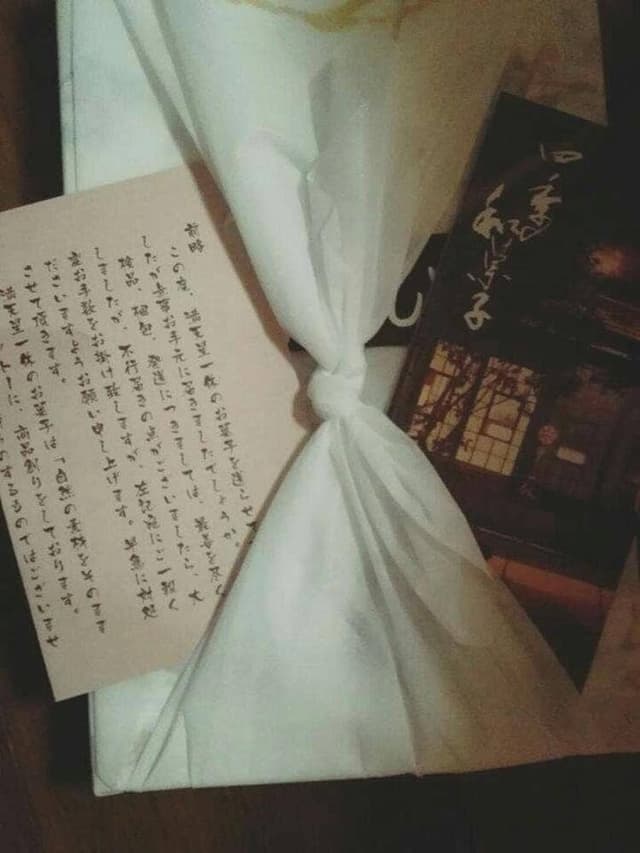 前略
この度、
のお菓子を送らせて
したが無事お手元に届きましたでしょうか。
検品、梱包、発送につきましては、最善を尽く
しましたが、不行届きの点がございましたら、大
変お手数をお掛け致しますが、左記宛にご一報く
ださいますようお願い申し上げます。早急に対応
させて頂きます。
のお菓子は、「自然の素材をそのまま
トに、
をしております。
するものではございませ
四季の
和菓子